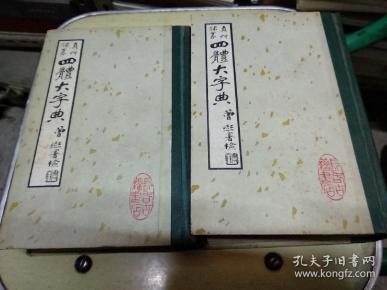 真行
隸篆
四體大字典
曾熙書檢
真行
隸篆
四體大字典
曾熙書檢
孔夫子旧书网
www.kongfz.com